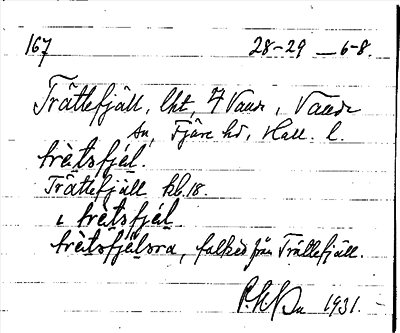 167 28-29 — 6-8.
Trättefjäll, lht, 7 Vands, Vands
sn, Fjäre hd, Hall. l.
trètsfjél.
Trättefjäll kb. 18.
i trètsfjél
trètsfjélsra, folket från Trättefjäll.
1931.